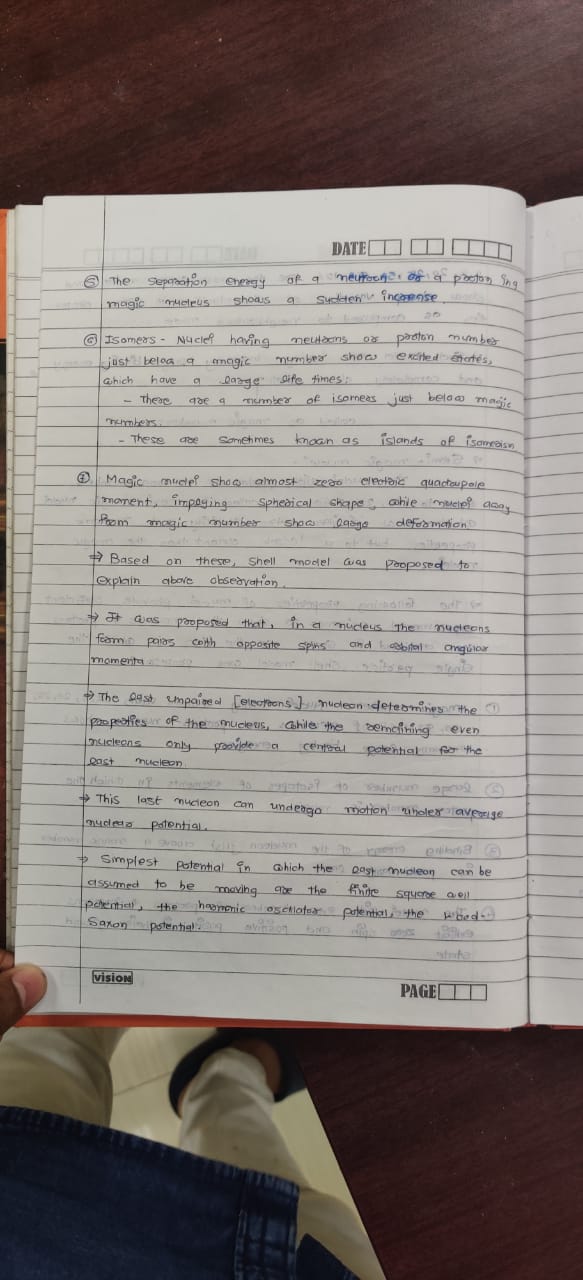 DATE
⑤ The separation energy of a neutron or a proton in a
magic nucleus shows a sudden increase.
⑥ Isomers - Nuclei having neutrons or proton number
just below a magic number show excited states,
which have a large life times.
- There are a number of isomers just below magic
numbers.
- These are sometimes known as islands of isomerism
⑦ Magic nuclei show almost zero electric quadrupole
moment, impying spherical shape; while nuclei away
from magic number show large deformation.
⇒ Based on these, shell model was proposed to
explain above observation.
⇒ It was proposed that, in a nucleus the nucleons
form pairs with opposite spins and orbital angular
momenta
⇒ The last unpaired [electrons] nucleon determines the
properties of the nucleus, while the remaining even
nucleons only provide a central potential for the
last nucleon.
⇒ This last nucleon can undergo motion under average
nuclear potential.
⇒ Simplest potential in which the last nucleon can be
assumed to be moving are the finite square well
potential, the harmonic oscillator potential, the Wood-
Saxon potential.
vision
PAGE